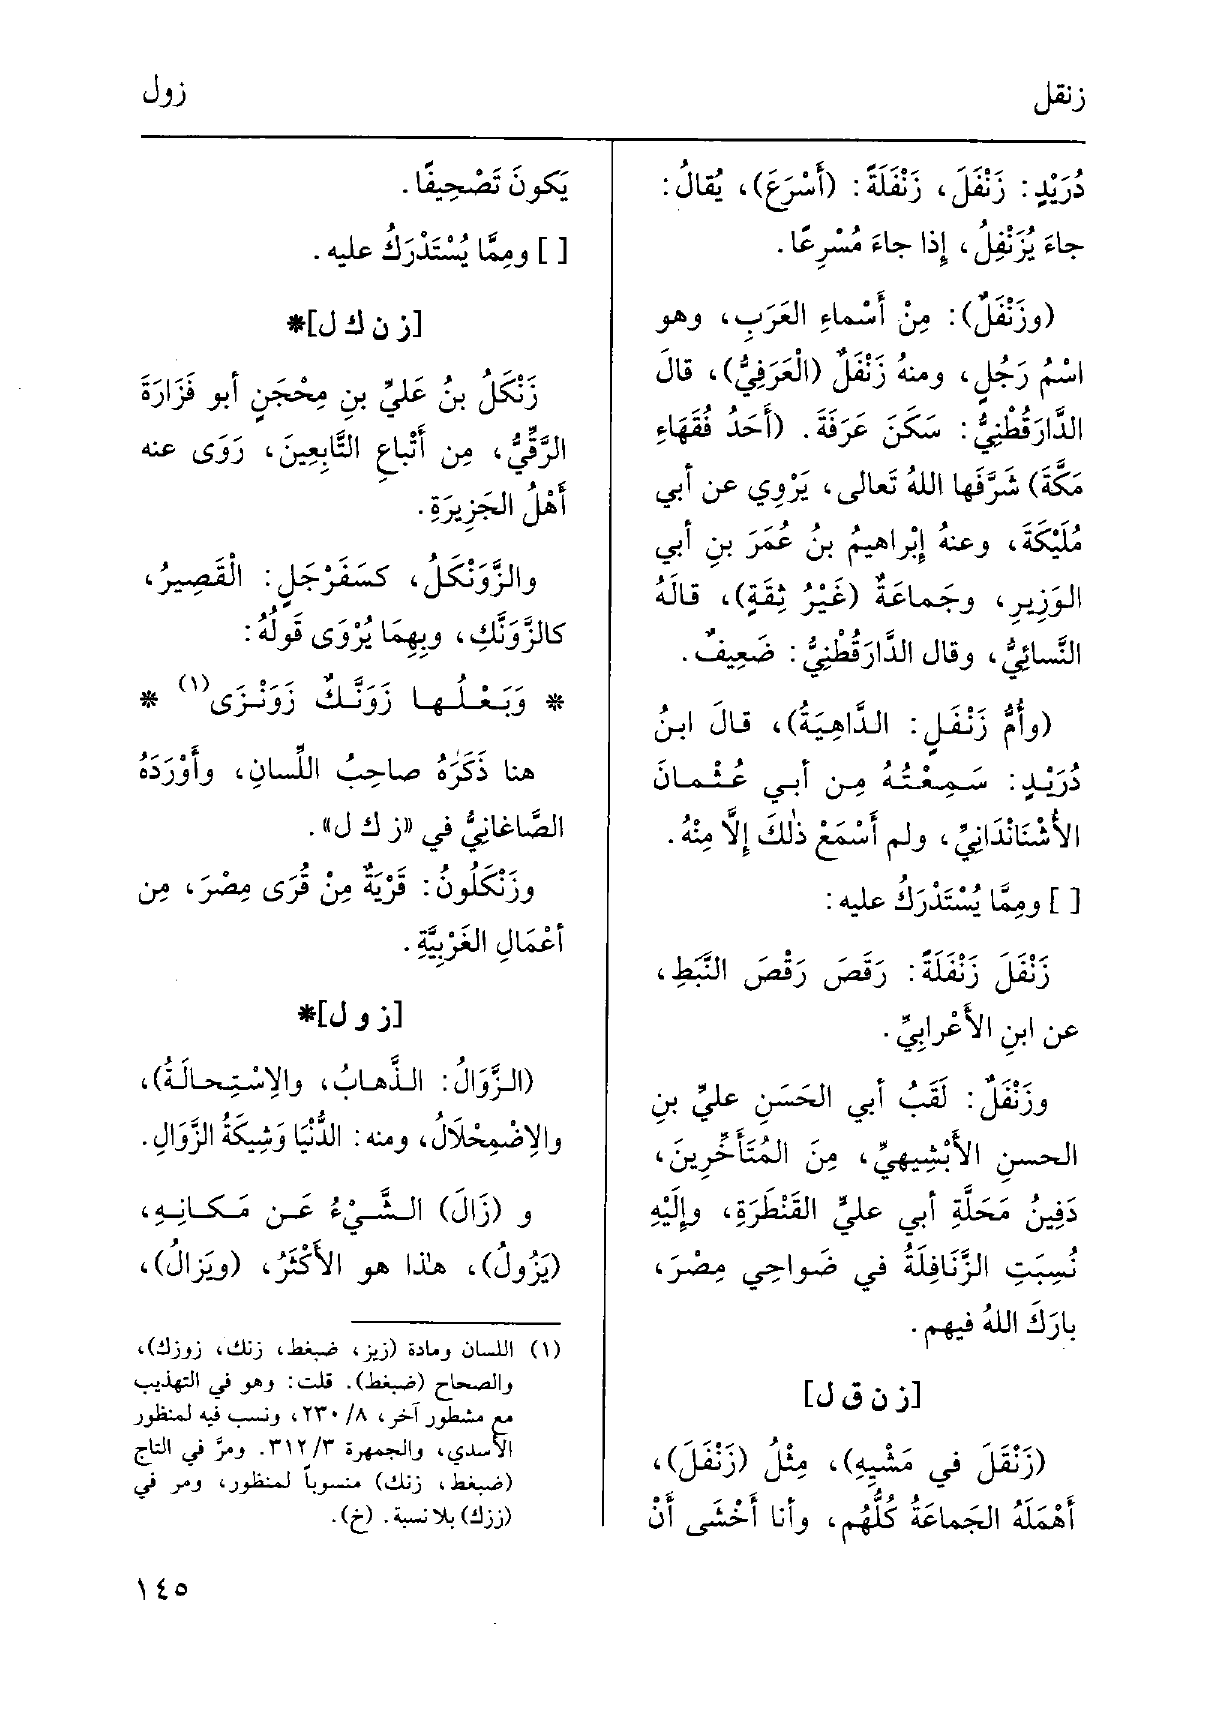 زنقل
زول
دُرَيْدٍ: زَنْفَلَ، زَنْفَلَةً: (أَسْرَعَ)، يُقالُ:
جاءَ يُزَنْفِلُ، إذا جاءَ مُسْرِعًا.
(وزَنْفَلٌ): مِنْ أَسْماءِ العَرَبِ، وهو
اسْمُ رَجُلٍ، ومنهُ زَنْفَلٌ (الْعَرَفِيُّ)، قالَ
الدَّارَقُطْنِيُّ: سَكَنَ عَرَفَةَ. (أَحَدُ فُقَهَاءِ
مَكَّةَ) شَرَّفَها اللهُ تَعالى، يَرْوِي عن أبي
مُلَيْكَةَ، وعنهُ إبْراهيمُ بنُ عُمَرَ بنِ أبي
الوَزِيرِ، وجَماعَةٌ (غَيْرُ ثِقَةٍ)، قالَهُ
النَّسائِيُّ، وقال الدَّارَقُطْنِيُّ: ضَعِيفٌ.
(وأُمُّ زَنْفَلٍ: الدَّاهِيَةُ)، قالَ ابنُ
دُرَيْدٍ: سَمِعْتُهُ مِن أبي عُثْمانَ
الأُشْنَانْدَانِيِّ، ولم أَسْمَعْ ذٰلكَ إلَّا مِنْهُ.
[ ] ومِمَّا يُسْتَدْرَكُ عليه:
زَنْفَلَ زَنْفَلَةً: رَقَصَ رَقْصَ النَّبَطِ،
عن ابنِ الأَعْرابِيِّ.
وزَنْفَلٌ: لَقَبُ أبي الحَسَنِ عليِّ بنِ
الحسنِ الأَبْشِيهيِّ، مِنَ المُتَأَخِّرِينَ،
دَفِينُ مَحَلَّةِ أبي عليٍّ القَنْطَرَةِ، وإلَيْهِ
نُسِبَتِ الزَّنَافِلَةُ في ضَواحِي مِصْرَ،
بارَكَ اللهُ فيهم.
[ز ن ق ل]
(زَنْقَلَ في مَشْيِهِ)، مِثْلُ (زَنْفَلَ)،
أَهْمَلَهُ الجَماعَةُ كُلُّهُم، وأنا أَخْشَى أَنْ
يَكونَ تَصْحِيفًا.
[ ] ومِمَّا يُسْتَدْرَكُ عليه.
[ز ن ك ل]*
زَنْكَلُ بنُ عَليِّ بنِ مِحْجَنٍ أبو فَزَارَةَ
الرَّقِّيُّ، مِن أَتْباعِ التَّابِعِينَ، رَوَى عنه
أَهْلُ الجَزِيرَةِ.
والزَّوَنْكَلُ، كسَفَرْجَلٍ: الْقَصِيرُ،
كالزَّوَنَّكِ، وبِهِمَا يُرْوَى قَولُهُ:
* وَبَعْلُها زَوَنَّكٌ زَوَنْزَى(١) *
هنا ذَكَرَهُ صاحِبُ اللِّسانِ، وأَوْرَدَهُ
الصَّاغانِيُّ في «ز ك ل».
وزَنْكَلُونُ: قَرْيَةٌ مِنْ قُرَى مِصْرَ، مِن
أَعْمَالِ الغَرْبِيَّةِ.
[ز و ل]*
(الزَّوَالُ: الذَّهابُ، والاِسْتِحالَةُ)،
والاِضْمِحْلَالُ، ومنه: الدُّنْيَا وَشِيكَةُ الزَّوَالِ.
و (زَالَ) الشَّيْءُ عَن مَكانِهِ،
(يَزُولُ)، هٰذا هو الأَكْثَرُ، (ويَزالُ)،
(١) اللسان ومادة (زيز، ضبغط، زنك، زوزك)،
والصحاح (ضبغط). قلت: وهو في التهذيب
مع مشطور آخر، ٨/ ٢٣٠، ونسب فيه لمنظور
الأسدي، والجمهرة ٣/ ٣١٢. ومرَّ في التاج
(ضبغط، زنك) منسوباً لمنظور، ومر في
(زرك) بلا نسبة. (خ).
١٤٥